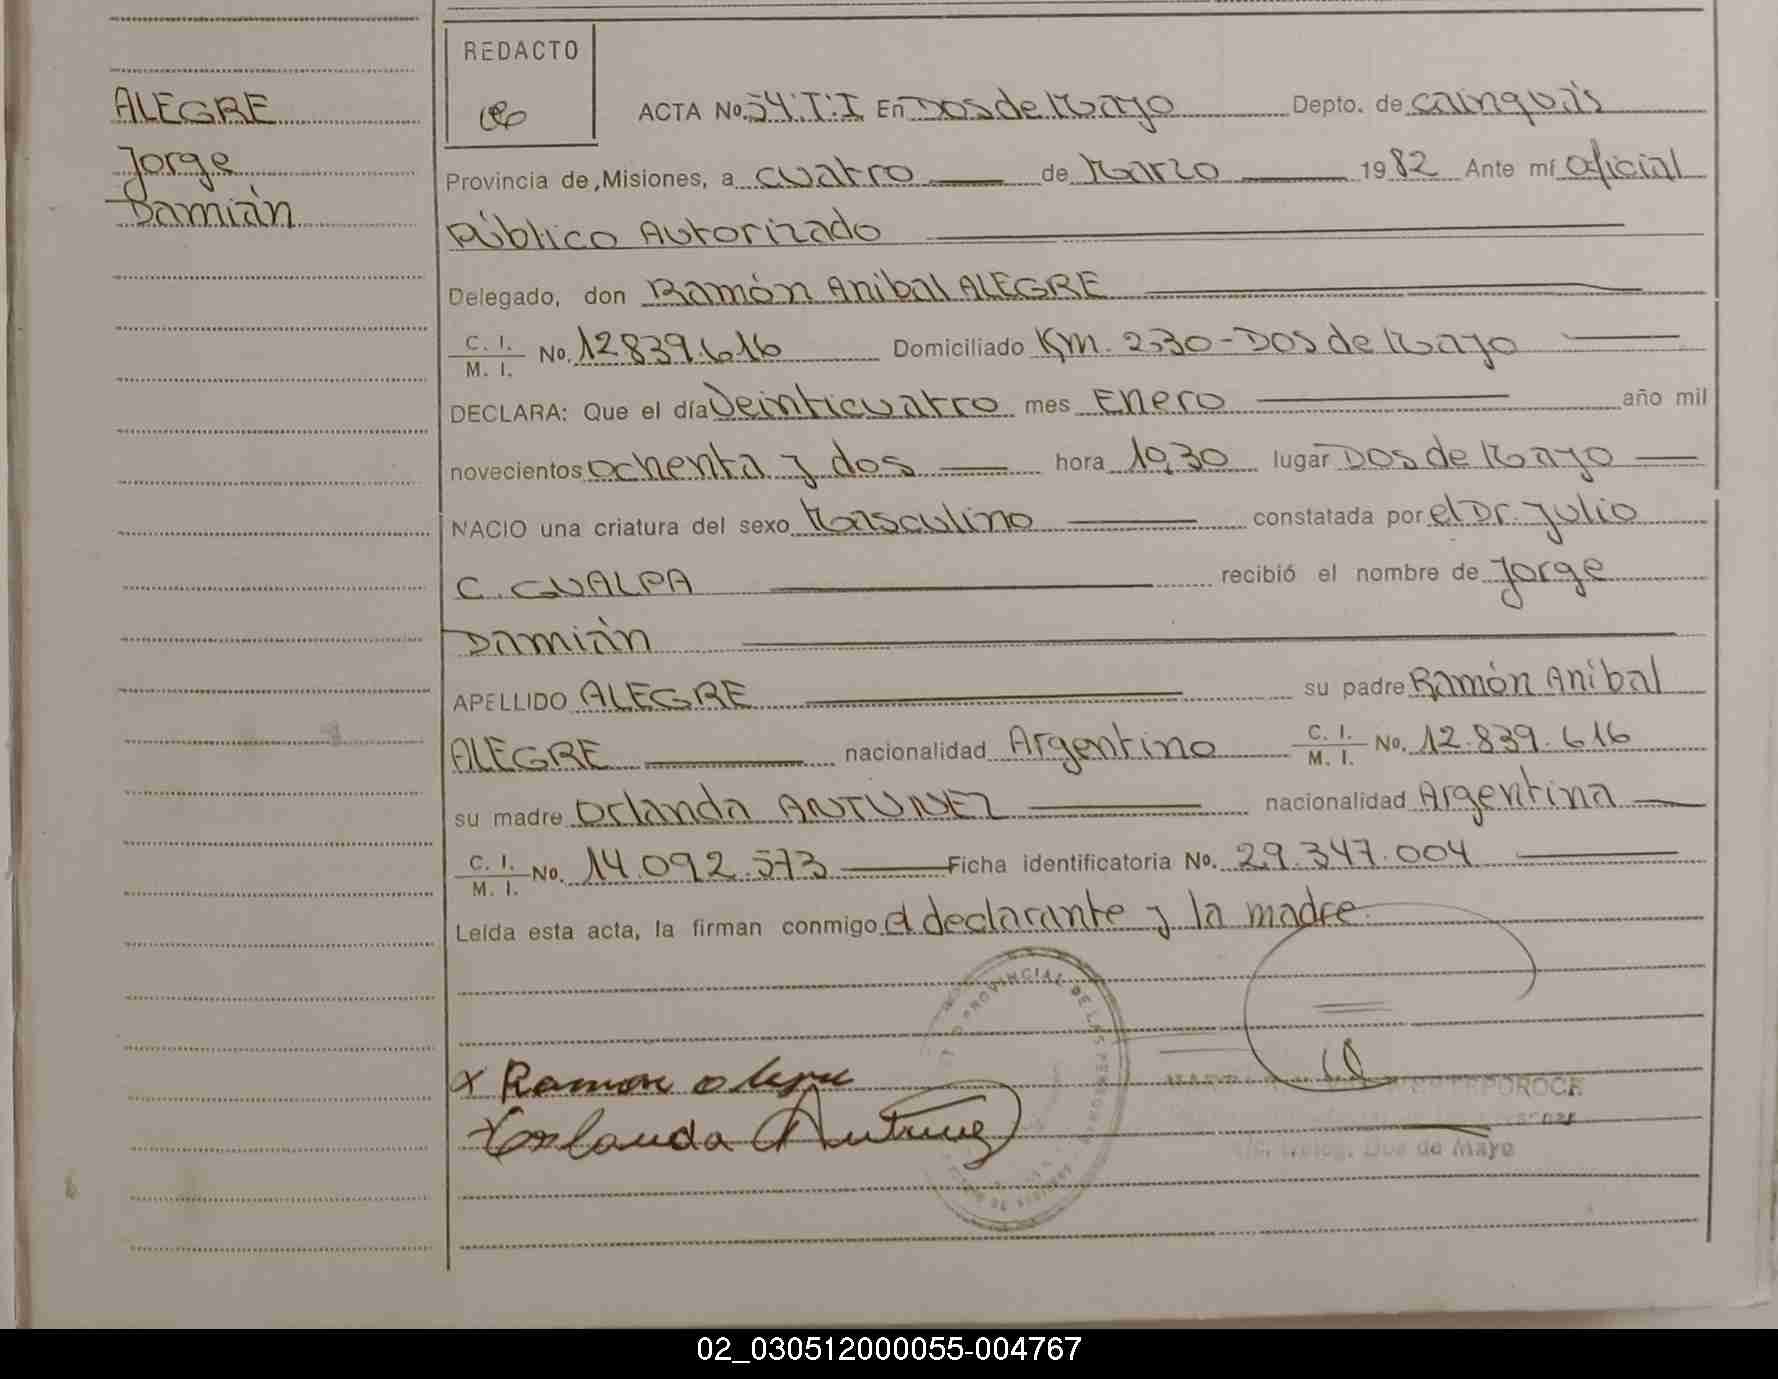 ALEGRE
Jorge
Damián
REDACTO
ACTA No. 54.T.I En Dos de Mayo Depto. de Cainguás
Provincia de Misiones, a cuatro de Marzo 1982 Ante mí oficial
Público Autorizado
Delegado, don Ramón Anibal ALEGRE
C. I. M. I. No. 12.839.616 Domiciliado Km. 230 - Dos de Mayo
DECLARA: Que el día Veinticuatro mes Enero año mil
novecientos ochenta y dos hora 10,30 lugar Dos de Mayo
NACIO una criatura del sexo Masculino constatada por el Dr. Julio
C. GUALPA recibió el nombre de Jorge
Damián
APELLIDO ALEGRE su padre Ramón Anibal
ALEGRE nacionalidad Argentino C. I. M. I. No. 12.839.616
su madre Orlanda ANTUNEZ nacionalidad Argentina
C. I. M. I. No. 14.092.573 Ficha identificatoria No. 29.347.004
Leída esta acta, la firman conmigo el declarante y la madre.
PROVINCIAL DE LAS PERSONAS
x Ramon alegre
x Orlanda Antunez
Dos de Mayo
02_030512000055-004767